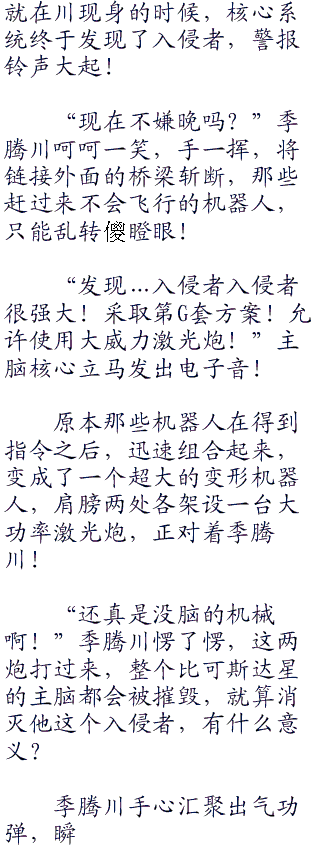 就在川现身的时候，核心系
统终于发现了入侵者，警报
铃声大起！
“现在不嫌晚吗？”季
腾川呵呵一笑，手一挥，将
链接外面的桥梁斩断，那些
赶过来不会飞行的机器人，
只能乱转儍瞪眼！
“发现…入侵者入侵者
很强大！采取第G套方案！允
许使用大威力激光炮！”主
脑核心立马发出电子音！
原本那些机器人在得到
指令之后，迅速组合起来，
变成了一个超大的变形机器
人，肩膀两处各架设一台大
功率激光炮，正对着季腾
川！
“还真是没脑的机械
啊！”季腾川愣了愣，这两
炮打过来，整个比可斯达星
的主脑都会被摧毁，就算消
灭他这个入侵者，有什么意
义？
季腾川手心汇聚出气功
弹，瞬